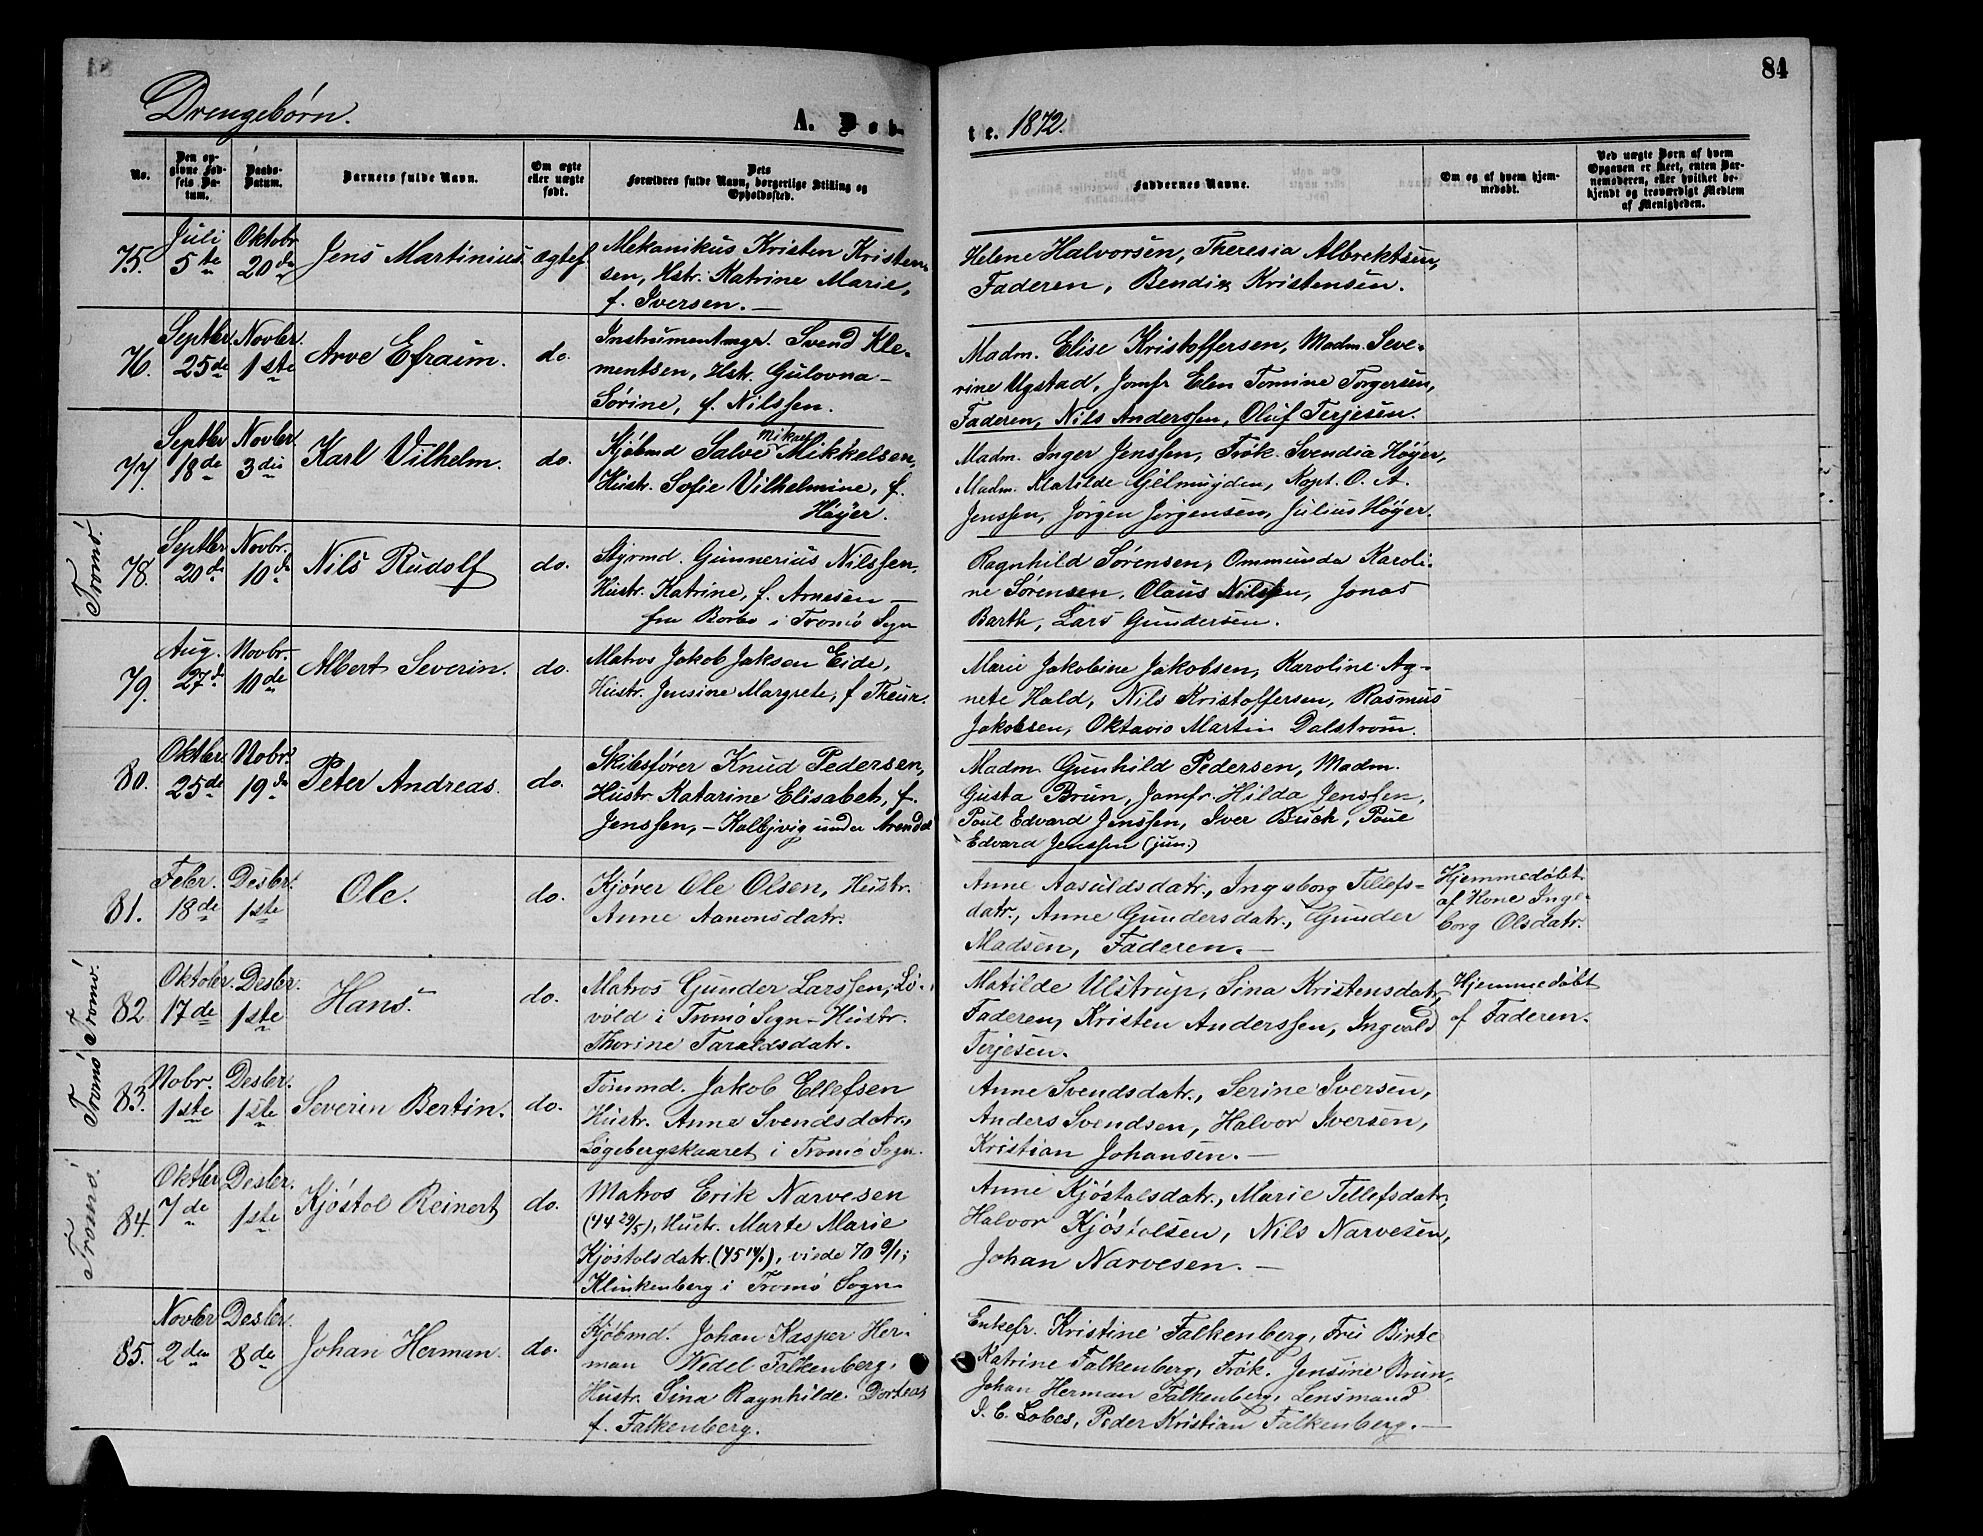 84
Drengebørn.
A. Døb-
te. 1872.
No.
Den op-
givne Fød-
sels Da-
tum.
Daabs-
Datum.
Barnets fulde Navn.
Om ægte
eller uægte
født.
Dets
Forældres fulde Navn, borgerlige Stilling og
Opholdssted.
Faddernes Navne.
Om og af hvem hjem-
medøbt.
Ved uægte Børn af hvem
Opgaven er skeet, enten Bar-
nemoderen, eller hvilket be-
kjendt og troværdigt Medlem
af Menigheden.
75. Juli 5te Oktobr 20de Jens Martinius. ægtef.
Mekanikus Kristen Kristen-
sen, Hstr. Katrine Marie,
f. Iversen. —
Helene Halvorsen, Theresia Albrektsen,
Faderen, Bendix Kristensen.
76. Septbr 25de Novbr. 1ste Arve Efraim. do.
Instrumentmgr. Svend Kle-
mentsen, Hstr. Gulovna
Sørine, f. Nilssen.
Madm. Elise Kristoffersen, Madm. Seve-
rine Ugstad, Jomfr Elen Tomine Torgersen,
Faderen, Nils Anderssen, Oluf Terjesen.
77 Septbr 18de Novbr. 3die Karl Vilhelm. do.
Kjøbmd Salve Mikael Mikkelsen,
Hustr. Sofie Vilhelmine, f.
Høyer.
Madm. Inger Jenssen, Frøk. Svendia Høyer,
Madm. Klatilde Gjelmuyden, Kapt. O. A.
Jenssen, Jørgen Jørgensen, Julius Høyer.
Tromø.
78. Septbr 20de Novbr. 10de Nils Rudolf do.
Styrmd. Gunnerius Nilssen,
Hustr. Katrine, f. Arnesen —
fra Borbo i Tromø Sogn
Ragnhild Sørensen, Ommunda Karoli-
ne Sørensen, Olaus Nilssen, Jonas
Barth, Lars Gundersen.
79. Aug. 27de Novbr. 10de Albert Severin. do.
Matros Jakob Jaksen Eide,
Hustr. Jensine Margrete, f Theur.
Marie Jakobine Jakobsen, Karoline Ag-
nete Hald, Nils Kristoffersen, Rasmus
Jakobsen, Oktavio Martin Dalstrøm.
80. Oktbr. 25de Nobr. 19de Peter Andreas. do.
Skibsfører Knud Pedersen,
Hustr. Katarine Elisabet, f.
Jenssen, — Kolbjvig under Arendal
Madm. Gunhild Pedersen, Madm.
Gusta Brun, Jomfr. Hilda Jenssen,
Poul Edvard Jenssen, Iver Buch, Poul
Edvard Jenssen (jun.)
81. Febr. 18de Desbr. 1ste Ole. do.
Kjører Ole Olsen, Hustr.
Anne Aanonsdatr.
Anne Aasuldsdatr., Ingeborg Tellefs-
datr., Anne Gundersdatr., Gunder
Madsen, Faderen. —
Hjemmedøbt
af Kone Inge-
borg Olsdatr.
Tromø.
82 Oktober. 17de Desbr. 1ste Hans. do.
Matros Gunder Larssen, Lø-
vold i Tromø Sogn — Hustr.
Thorine Taraldsdatr.
Matilde Ulstrup, Sina Kristensdatr,
Faderen, Kristen Anderssen, Ingvald
Terjesen.
Hjemmedøbt
af Faderen.
Tromø
83. Nobr. 1ste Desbr. 1ste Severin Bertin. do.
Tømmd. Jakob Ellefsen
Hustr. Anne Svendsdatr.,
Løgebergskaaret i Tromø Sogn.
Anne Svendsdatr., Serine Iversen,
Anders Svendsen, Halvor Iversen,
Kristian Johansen. —
Tromø.
84. Oktbr 7de Desbr. 1ste Kjøstol Reinert do.
Matros Erik Narvesen
(44 29/5), Hustr. Marte Marie
Kjøstolsdatr. (45 14/), viede 70 9/1;
Klinkenberg i Tromø Sogn
Anne Kjøstolsdatr., Marie Tellefsdatr,
Halvor Kjøstolsen, Nils Narvesen,
Johan Narvesen. —
85. Novbr 2den Desbr. 8de Johan Herman. do.
Kjøbmd. Johan Kasper Her-
man Wedel Falkenberg,
Hustr. Sina Ragnhilde Dorteas
f. Falkenberg.
Enkefr. Kristine Falkenberg, Fru Birte
Katrine Falkenberg, Frøk. Jensine Brun,
Johan Herman Falkenberg, Lensmand
I. C. Lobes, Peder Kristian Falkenberg. —